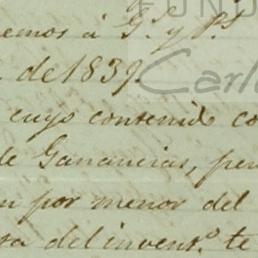 FUND
emos à G.s y P.s
de 1839.
Carlo
cuyo contenido co
de Ganancias, per
por menor del
del invent.o te